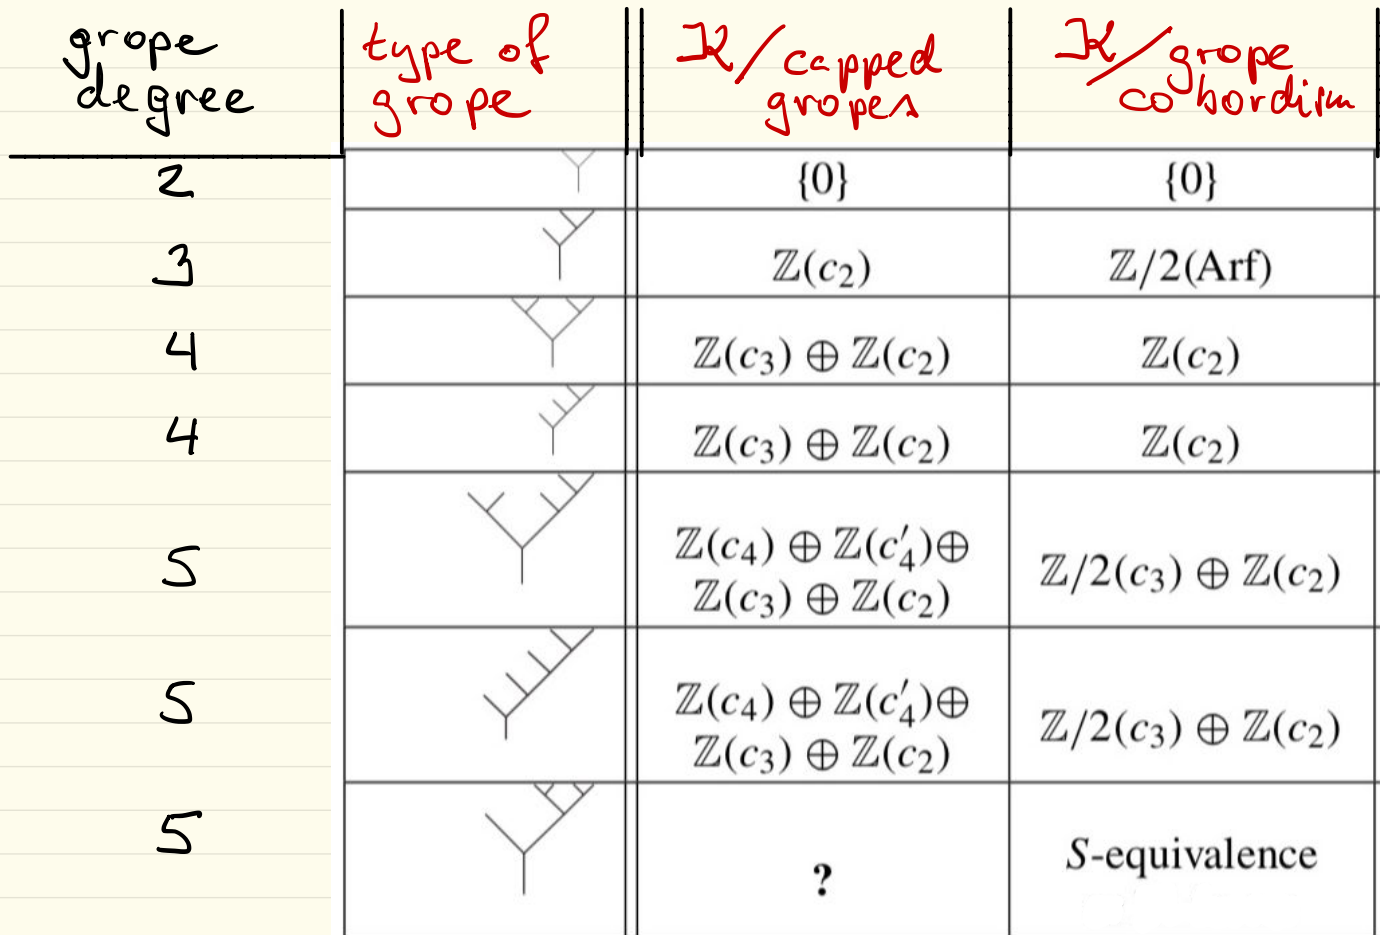 grope degree | type of grope | 𝒦/capped gropes | 𝒦/grope cobordism
2 | {0} | {0}
3 | ℤ(c₂) | ℤ/2(Arf)
4 | ℤ(c₃) ⊕ ℤ(c₂) | ℤ(c₂)
4 | ℤ(c₃) ⊕ ℤ(c₂) | ℤ(c₂)
5 | ℤ(c₄) ⊕ ℤ(c′₄)⊕ ℤ(c₃) ⊕ ℤ(c₂) | ℤ/2(c₃) ⊕ ℤ(c₂)
5 | ℤ(c₄) ⊕ ℤ(c′₄)⊕ ℤ(c₃) ⊕ ℤ(c₂) | ℤ/2(c₃) ⊕ ℤ(c₂)
5 | ? | S-equivalence